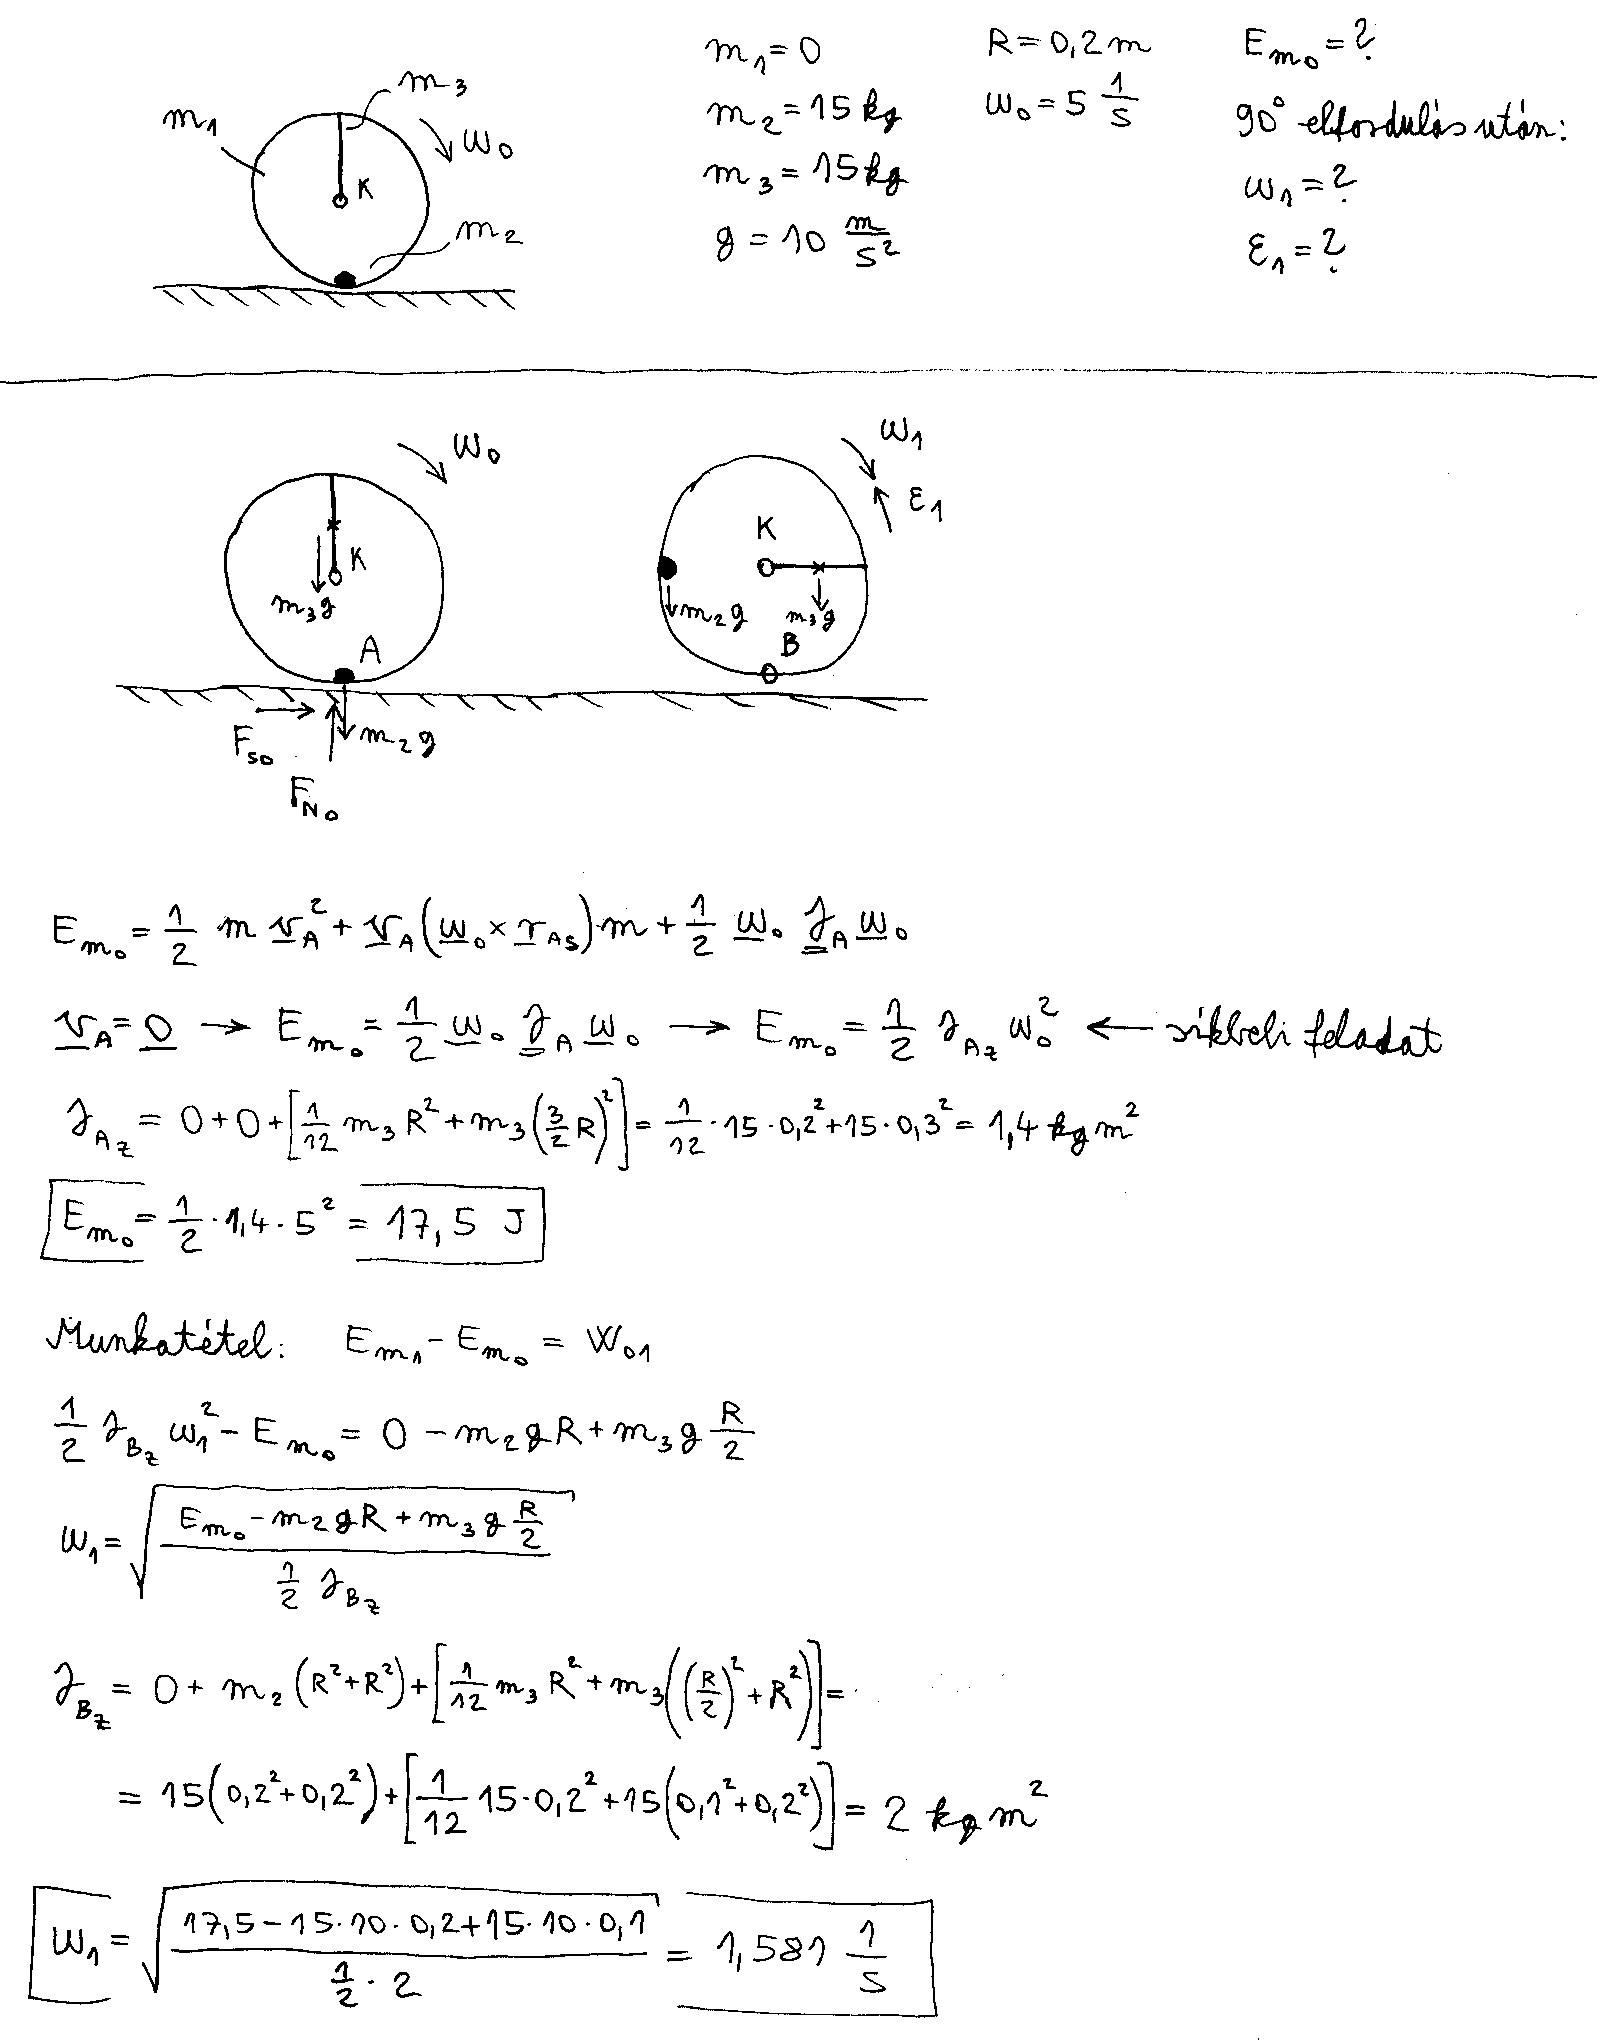 m₁ = 0   R = 0,2 m   E_m₀ = ?
m₂ = 15 kg   ω₀ = 5 1/s   90° elfordulás után:
m₃ = 15 kg   ω₁ = ?
g = 10 m/s²   ε₁ = ?
m₃
m₁
ω₀
K
m₂
ω₀
K
m₃g
A
F_S0
m₂g
F_N0
ω₁
ε₁
K
m₂g
m₃g
B
E_m₀ = 1/2 m v_A² + v_A (ω₀ × r_AS)·m + 1/2 ω₀ J_A ω₀
v_A = 0 → E_m₀ = 1/2 ω₀ J_A ω₀ → E_m₀ = 1/2 J_Az ω₀² ← síkbeli feladat
J_Az = 0 + 0 + [1/12 m₃ R² + m₃ (3/2 R)²] = 1/12 · 15 · 0,2² + 15 · 0,3² = 1,4 kgm²
E_m₀ = 1/2 · 1,4 · 5² = 17,5 J
Munkatétel: E_m₁ - E_m₀ = W₀₁
1/2 J_Bz ω₁² - E_m₀ = 0 - m₂gR + m₃g R/2
ω₁ = √((E_m₀ - m₂gR + m₃g R/2) / (1/2 J_Bz))
J_Bz = 0 + m₂ (R² + R²) + [1/12 m₃ R² + m₃ ((R/2)² + R²)] =
= 15 (0,2² + 0,2²) + [1/12 15 · 0,2² + 15 (0,1² + 0,2²)] = 2 kgm²
ω₁ = √((17,5 - 15 · 10 · 0,2 + 15 · 10 · 0,1) / (1/2 · 2)) = 1,581 1/s